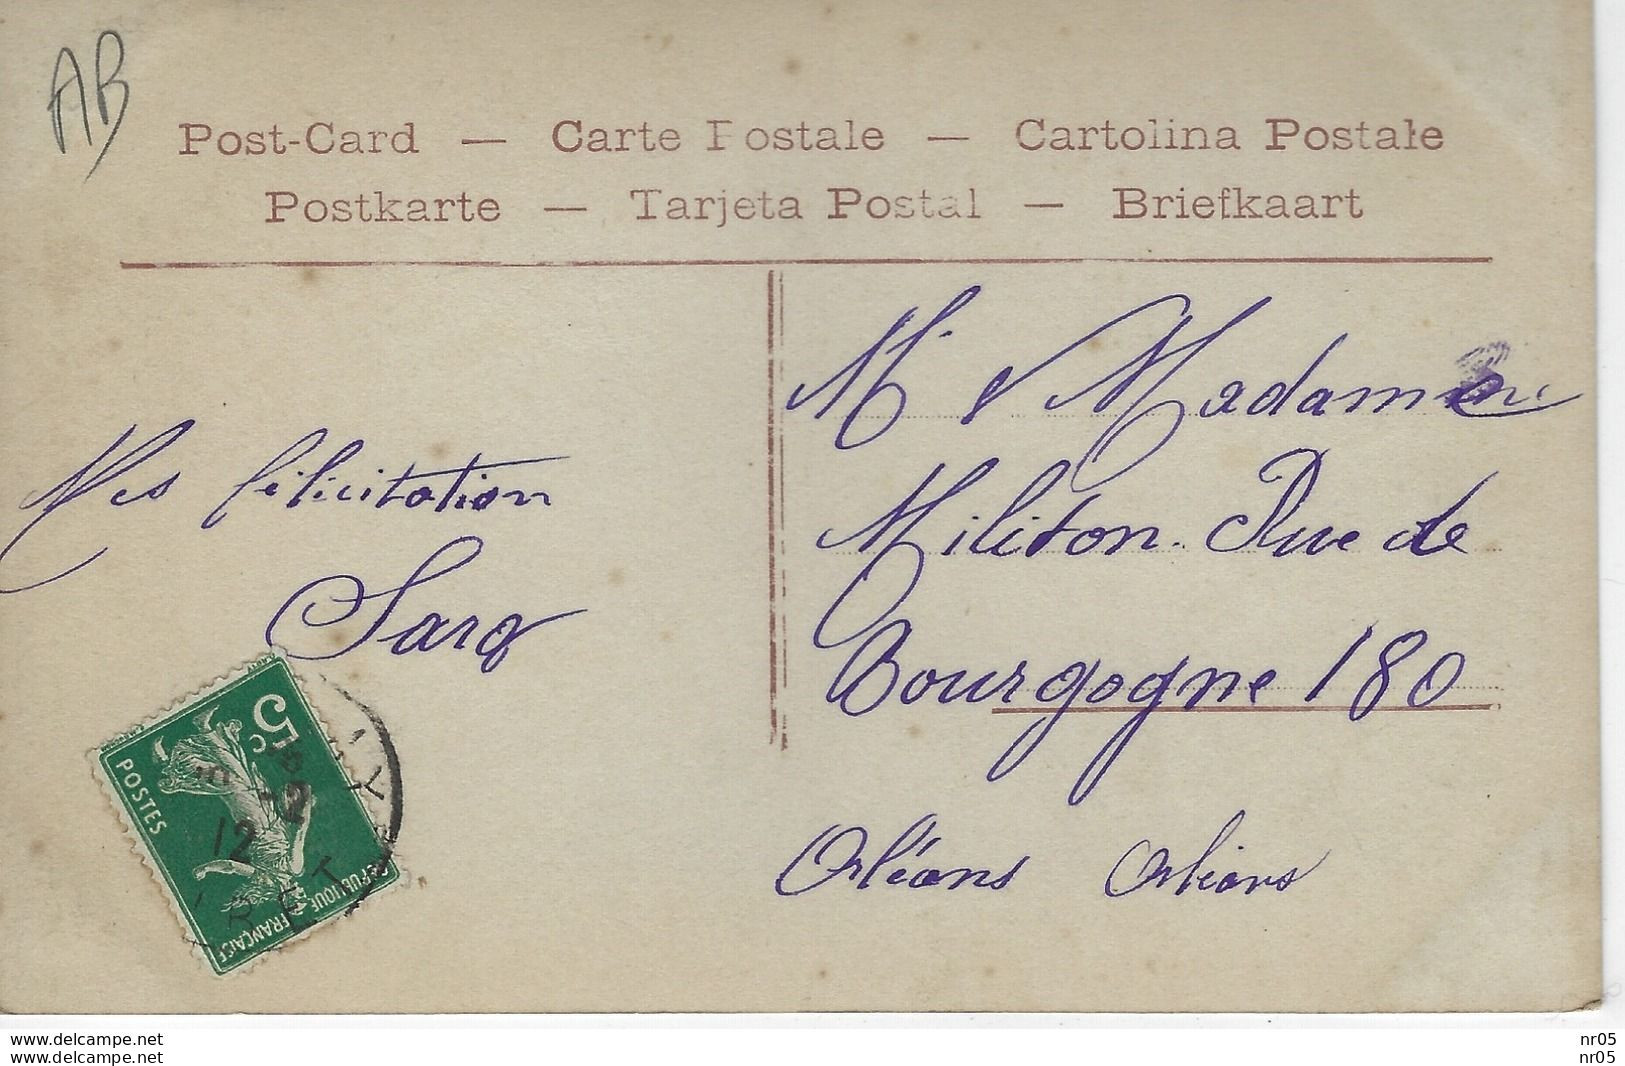 AB
Post-Card — Carte Postale — Cartolina Postale
Postkarte — Tarjeta Postal — Briefkaart
Mes félicitation
Sarq
M. & Madame
Militon. Rue de
Bourgogne 180
Orléans Orléans
5c
POSTES
REPUBLIQUE FRANÇAISE
12
www.delcampe.net
www.delcampe.net
nr05
nr05